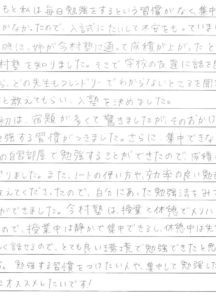 もと私は毎日勉強をするという習慣がなく集中
かなかったので、入試にたいして不安をもっていまし
の時に、姉が今村塾に通って成績が上がったと
村塾を知りました。そこで
ら、どの先生もフレンドリーでわからないところを聞
と思い、入塾を決めました。
初は宿題が多くて驚きましたが、そのおかげ
強する習慣がつきました。さらに、集中できな
の自習部屋で勉強することができたので、成績
りました。また、ノートの使い方や効率の良い勉強
えてくださったので、自分にあった勉強法をみ
ができました。今村塾は、授業と休憩でメリハ
ので、授業中は静かで集中できるし、休憩中は先
しく話せるので、とても良い環境で勉強できたと思
。勉強する習慣をつけたい人や、集中して勉強した
にオススメしたいです!